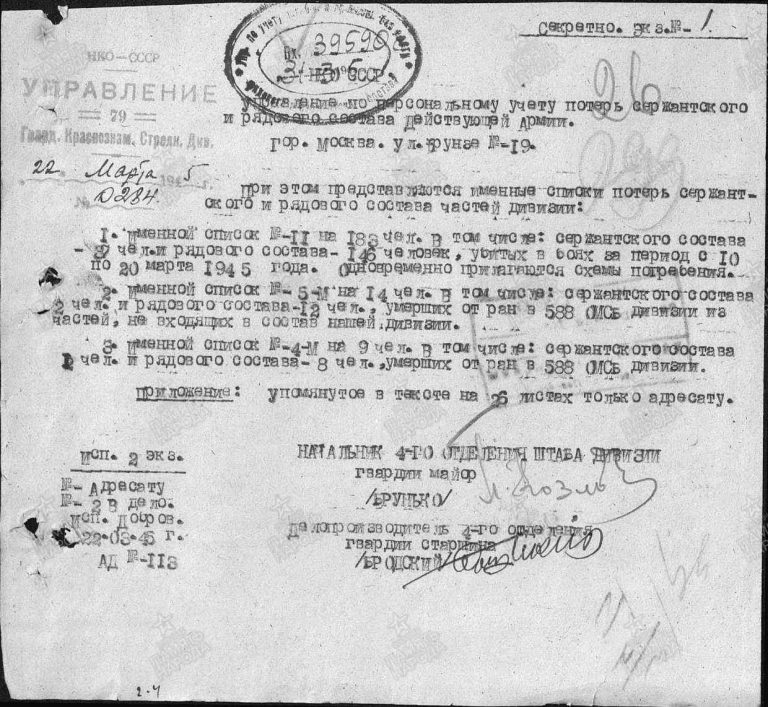 Секретно. экз.№- 1
Вх. 39590
НКО-СССР
НКО СССР
УПРАВЛЕНИЕ
79
Гвард. Краснознам. Стрелк. Див.
22 Марта 1945 г.
№ 0284.
управление по персональному учету потерь сержантского
и рядового состава Действующей Армии.
Гор. Москва. ул.Фрунзе №-19.
При этом представляются именные списки потерь сержант-
ского и рядового состава частей дивизии:
1. Именной список №-11 на 183 чел. В том числе: сержантского состава
- чел.и рядового состава- 146 человек, убитых в боях за период с 10
по 20 марта 1945 года. Одновременно прилагаются схемы погребения.
2. Именной список №-5-М на 14 чел. В том числе: сержантского состава
2 чел. и рядового состава-12 чел., умерших от ран в 588 ОМСБ дивизии из
частей, не входящих в состав нашей дивизии.
3. Именной список №-4-М на 9 чел. В том числе: сержантского состава
1 чел. и рядового состава- 8 чел.,умерших от ран в 588 ОМСБ дивизии.
Приложение: упомянутое в тексте на 26 листах только адресату.
НАЧАЛЬНИК 4-ГО ОТДЕЛЕНИЯ ШТАБА ДИВИЗИИ
гвардии майор
/БРУНЬКО/
Делопроизводитель 4-го отделения
гвардии старшина
/БРОДСКИЙ/
Исп. 2 экз.
№- Адресату
№- 2 В дело.
Исп. Добров.
22-03-45 г.
АД №-113
26
2-4